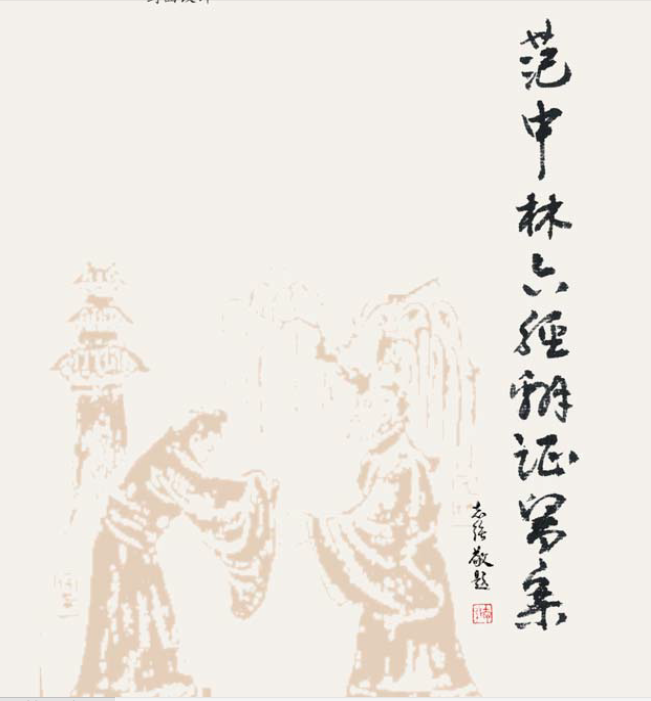 范中林六经辨证医案
志强敬题